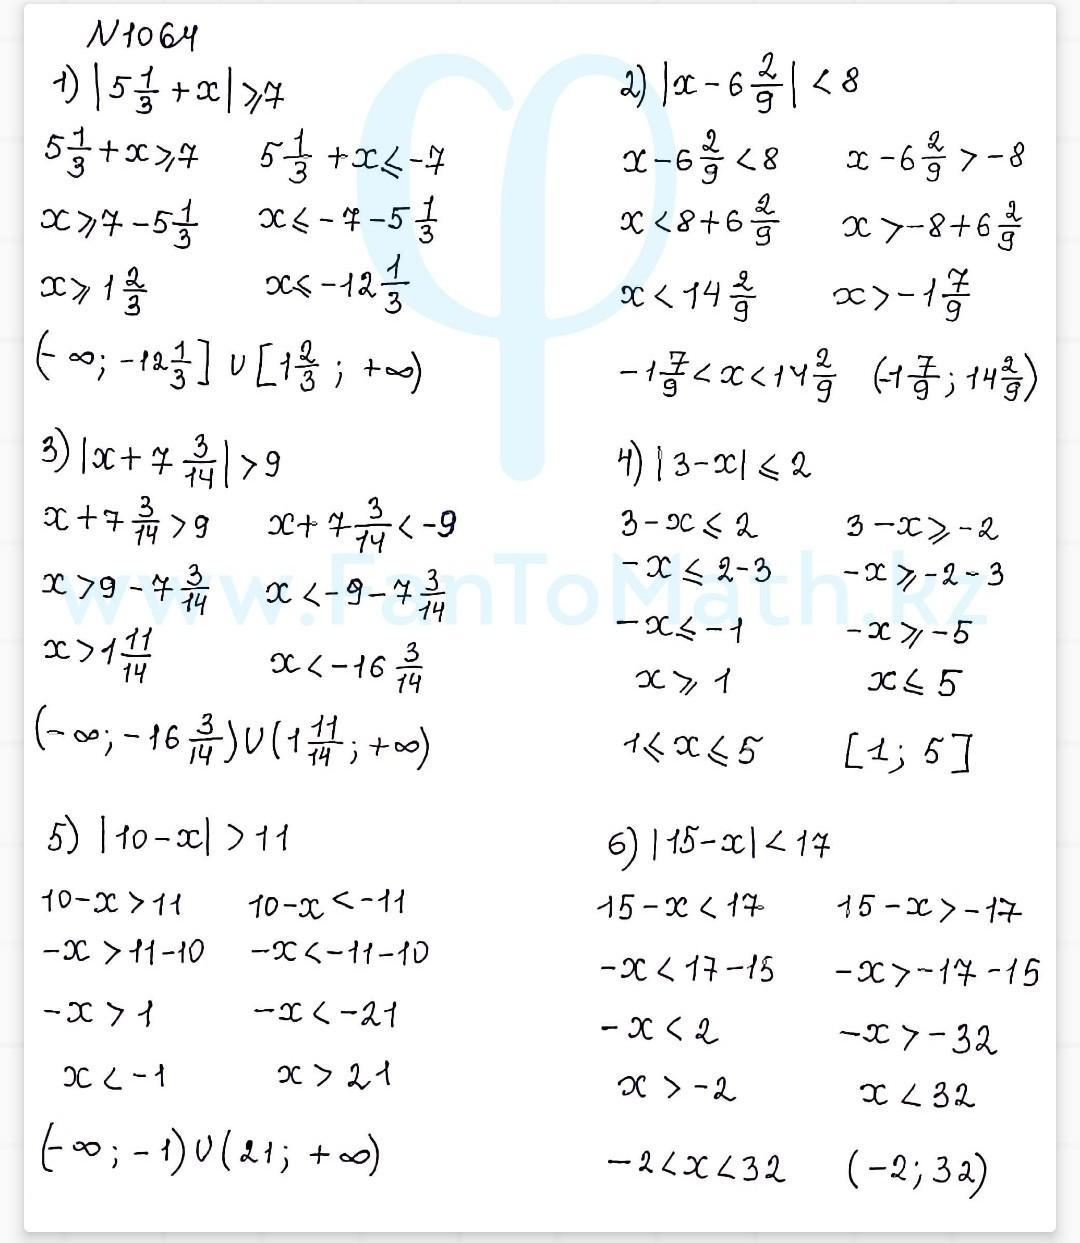 N1064
1) |5 1/3 + x| ⩾ 7
5 1/3 + x ⩾ 7    5 1/3 + x ⩽ -7
x ⩾ 7 - 5 1/3    x ⩽ -7 - 5 1/3
x ⩾ 1 2/3    x ⩽ -12 1/3
(-∞; -12 1/3] ∪ [1 2/3; +∞)
2) |x - 6 2/9| < 8
x - 6 2/9 < 8    x - 6 2/9 > -8
x < 8 + 6 2/9    x > -8 + 6 2/9
x < 14 2/9    x > -1 7/9
-1 7/9 < x < 14 2/9    (-1 7/9; 14 2/9)
3) |x + 7 3/14| > 9
x + 7 3/14 > 9    x + 7 3/14 < -9
x > 9 - 7 3/14    x < -9 - 7 3/14
x > 1 11/14    x < -16 3/14
(-∞; -16 3/14) ∪ (1 11/14; +∞)
4) |3 - x| ⩽ 2
3 - x ⩽ 2    3 - x ⩾ -2
-x ⩽ 2 - 3    -x ⩾ -2 - 3
-x ⩽ -1    -x ⩾ -5
x ⩾ 1    x ⩽ 5
1 ⩽ x ⩽ 5    [1; 5]
www.FanToMath.kz
5) |10 - x| > 11
10 - x > 11    10 - x < -11
-x > 11 - 10    -x < -11 - 10
-x > 1    -x < -21
x < -1    x > 21
(-∞; -1) ∪ (21; +∞)
6) |15 - x| < 17
15 - x < 17    15 - x > -17
-x < 17 - 15    -x > -17 - 15
-x < 2    -x > -32
x > -2    x < 32
-2 < x < 32    (-2; 32)